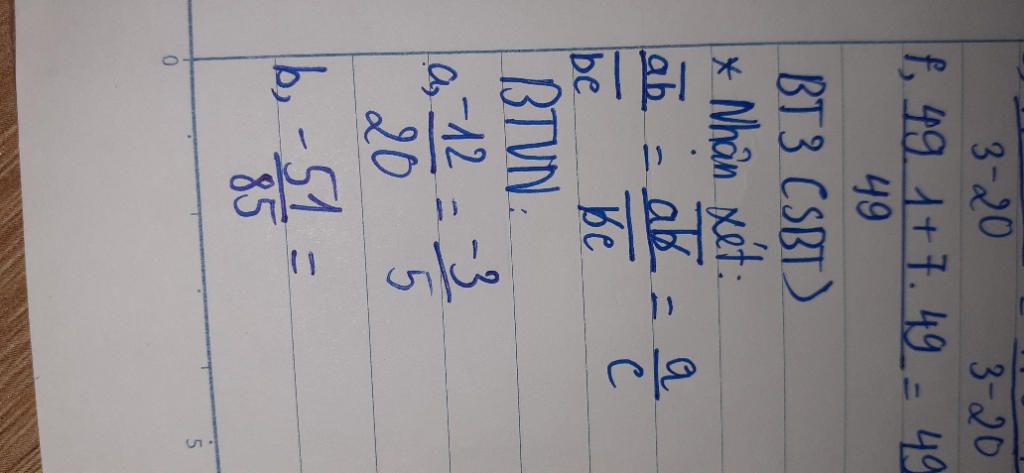 3-20 3-20
f, 49. 1 + 7. 49 = 49
49
BT 3 (SBT)
* Nhận xét:
ab = ab = a
bc bc c
BTVN:
a, -12 = -3
20 5
b, -51 =
85
0 5